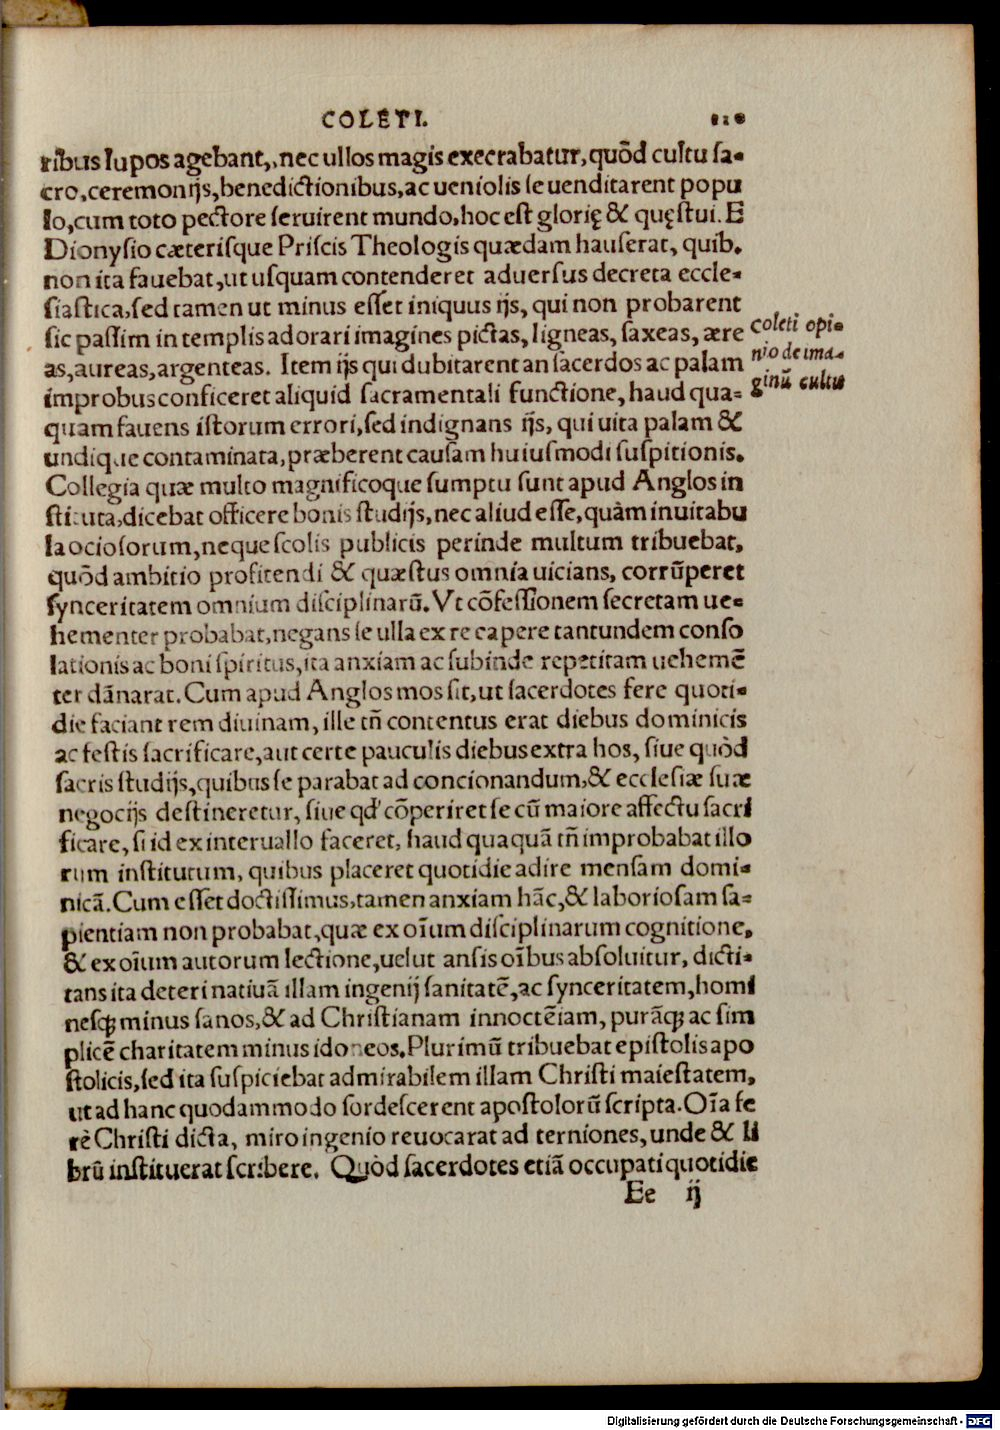 COLETI. 210
tribus lupos agebant, nec ullos magis execrabatur, quōd cultu sa-
cro, ceremonijs, benedictionibus, ac ueniolis se uenditarent popu
lo, cum toto pectore seruirent mundo, hoc est glorię & quęstui. E
Dionysio cæterisque Priscis Theologis quædam hauserat, quib.
non ita fauebat, ut usquam contenderet aduersus decreta eccle-
siastica, sed tamen ut minus esset iniquus ijs, qui non probarent
sic passim in templis adorari imagines pictas, ligneas, saxeas, ære
as, aureas, argenteas. Item ijs qui dubitarent an sacerdos ac palam
improbus conficeret aliquid sacramentali functione, haud qua-
quam fauens istorum errori, sed indignans ijs, qui uita palam &
undique contaminata, præberent causam huiusmodi suspitionis.
Collegia quæ multo magnificoque sumptu sunt apud Anglos in
stituta, dicebat officere bonis studijs, nec aliud esse, quàm inuitabu
la ociosorum, neque scolis publicis perinde multum tribuebat,
quōd ambitio profitendi & quæstus omnia uicians, corrūperet
synceritatem omnium disciplinarū. Vt cōfessionem secretam ue-
hementer probabat, negans se ulla ex re capere tantundem conso
lationis ac boni spiritus, ita anxiam ac subinde repetitam uehemē
ter dānarat. Cum apud Anglos mos sit, ut sacerdotes fere quoti-
die faciant rem diuinam, ille tñ contentus erat diebus dominicis
ac festis sacrificare, aut certe pauculis diebus extra hos, siue quòd
sacris studijs, quibus se parabat ad concionandum, & ecclesiæ suæ
negocijs destineretur, siue qd' cōperiret se cū maiore affectu sacri
ficare, si id ex interuallo faceret, haud quaquā tñ improbabat illo
rum institutum, quibus placeret quotidie adire mensam domi-
nicā. Cum esset doctissimus, tamen anxiam hāc, & laboriosam sa-
pientiam non probabat, quæ ex oīum disciplinarum cognitione,
& ex oīum autorum lectione, uelut ansis oībus absoluitur, dicti-
tans ita deteri natiuā illam ingenij sanitatē, ac synceritatem, homi
nesq; minus sanos, & ad Christianam innoctēiam, purāq; ac sim
plicē charitatem minus idoneos. Plurimū tribuebat epistolis apo
stolicis, sed ita suspiciebat admirabilem illam Christi maiestatem,
ut ad hanc quodammodo sordescerent apostolorū scripta. Oīa fe
rè Christi dicta, miro ingenio reuocarat ad terniones, unde & li
brū instituerat scribere. Quòd sacerdotes etiā occupati quotidie
Ee ij
Coleti opi-
nio de ima-
ginū cultu
Digitalisierung gefördert durch die Deutsche Forschungsgemeinschaft - DFG